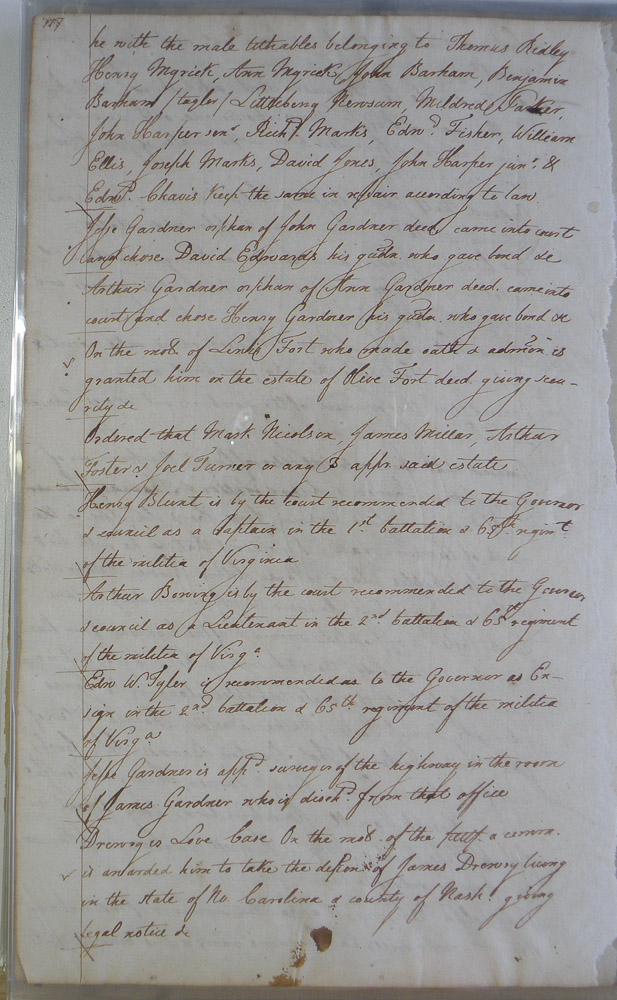 177
he with the male tithables belonging to Thomas Ridley
Henry Myrick, Ann Myrick, John Barham, Benjamin
Barham /taylor/ Littleberg Newsum, Mildred Parker,
John Harper senr, Richd. Marks, Edwd. Fisher, William
Ellis, Joseph Marks, David Jones, John Harper junr. &
Edwd. Chavis keep the same in repair according to law
Jesse Gardner orphan of John Gardner decd. came into court
and chose David Edwards his gudn. who gave bond &c
Arthur Gardner orphan of Ann Gardner decd. came into
court and chose Henry Gardner his gudn. who gave bond &c
On the mo of Fort who made oath & admon is
granted him on the estate of Olive Fort decd. giving secu-
rity &c
Ordered that Mark Nicolson, James Millar, Arthur
Foster & Joel Turner or any 3 appr. said estate
Henry Blunt is by the court recommended to the Govornor
& council as a Captain in the 1st battalion & 65th regimt.
of the militia of Virginia
Arthur is by the court recommended to the Governor
& council as a Lieutenant in the 2nd battalion & 65th regiment
of the militia of Virga.
Edw W. Tyler is recommended as to the Governor as En-
sign in the 2nd. battalion & 65th regiment of the militia
of Virga
Jesse Gardner is appd. surveyor of the highway in the room
of James Gardner who is dischd. from that office
Drewry vs Love Case On the mo of the a
is awarded him to take the depon. of James Drewry living
in the state of No. Carolina & county of Nash. giving
legal notice &c